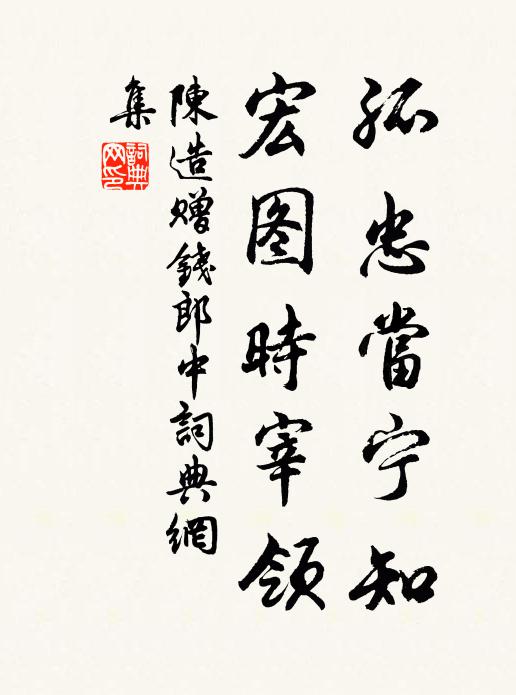 孤忠當宁知
宏图時宰領
陳造贈錢郎中詞典網
集
詞典
网印